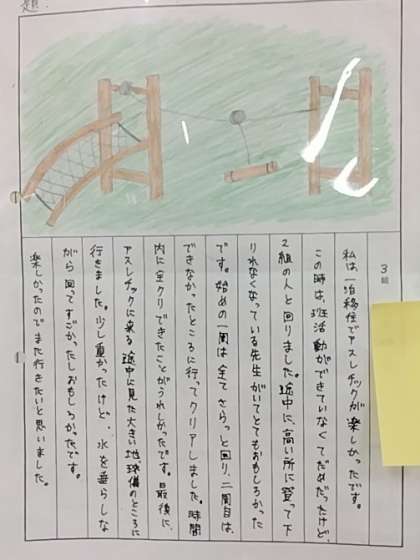 3組
私は一泊移住でアスレチックが楽しかったです。
この時は、班活動ができていなくてだめだったけど、
2組の人と回りました。途中に、高い所に登って下
りれなくなっている先生がいてとてもおもしろかった
です。始めの一周は全てさらっと回り、二周目は、
できなかったところに行ってクリアしました。時間
内に全クリできたことがうれしかったです。最後に、
アスレチックに来る途中に見た大きい地球儀のところに
行きました。少し重かったけど、水を垂らしな
がら回ってすごかったしおもしろかったです。
楽しかったのでまた行きたいと思いました。